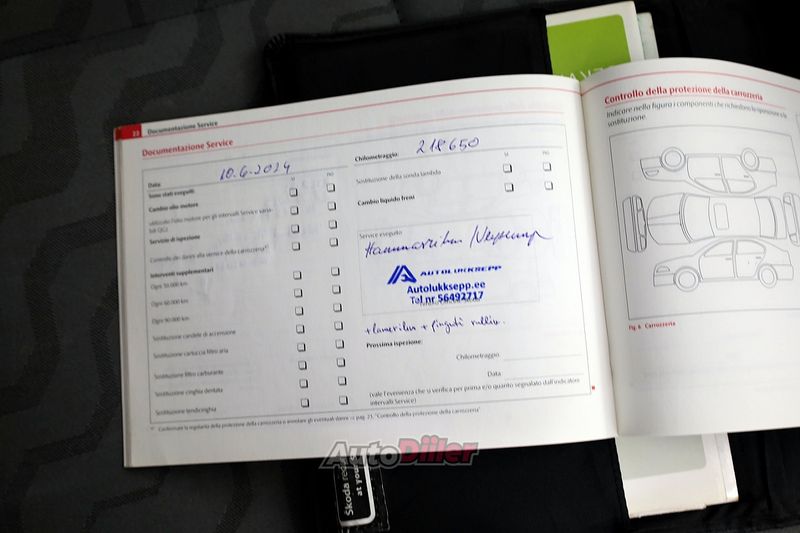 23 Documentazione Service
Documentazione Service
Data: 10.6.2014
Sono stati eseguiti: sì no
Cambio olio motore
utilizzato l'olio motore per gli intervalli Service varia-
bili QG1
Servizio di ispezione
Controllo dei danni alla vernice della carrozzeria
Interventi supplementari
Ogni 30.000 km
Ogni 60.000 km
Ogni 90.000 km
Sostituzione candele di accensione
Sostituzione cartuccia filtro aria
Sostituzione filtro carburante
Sostituzione cinghia dentata
Sostituzione tendicinghia
Chilometraggio: 218650
sì no
Sostituzione della sonda lambda
Cambio liquido freni
Service eseguito
Hammasrihm
AUTOLUKKSEPP
Autolukksepp.ee
Tel nr 56492717
+ pinguti rullik.
Prossima ispezione:
Chilometraggio
Data
(vale l'evenienza che si verifica per prima e/o quanto segnalato dall'indicatore
intervalli Service)
Confermare la regolarità della protezione della carrozzeria o annotare gli eventuali danni ⇒ pag. 23, "Controllo della protezione della carrozzeria"
Controllo della protezione della carrozzeria
Indicare nella figura i componenti che richiedono la riparazione o la
sostituzione.
Fig. 6 Carrozzeria
AutoDiler
Škoda
at your